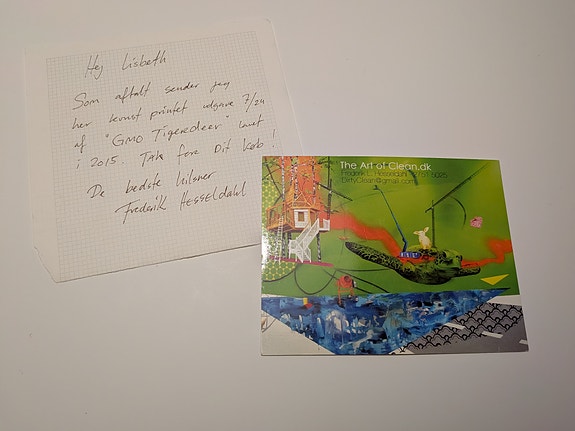 Hej Lisbeth
Som aftalt sender jeg
her kunst printet udgave 7/24
af "GMO Tigerdeer" lavet
i 2015. Tak fore Dit køb!
De bedste hilsner
Frederik Hesseldahl
The Art of Clean.dk
Frederik L. Hesseldahl
DirtyClean@gmail.com